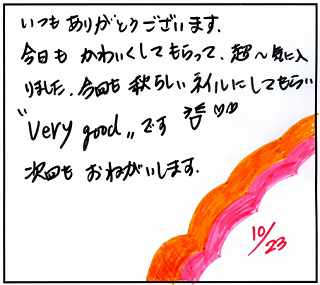 いつもありがとうございます.
今日も かわいくしてもらって、超〜気に入
りました. 今回も 秋らしいネイルにしてもらい
"very good" です
次回も おねがいします.
10/23